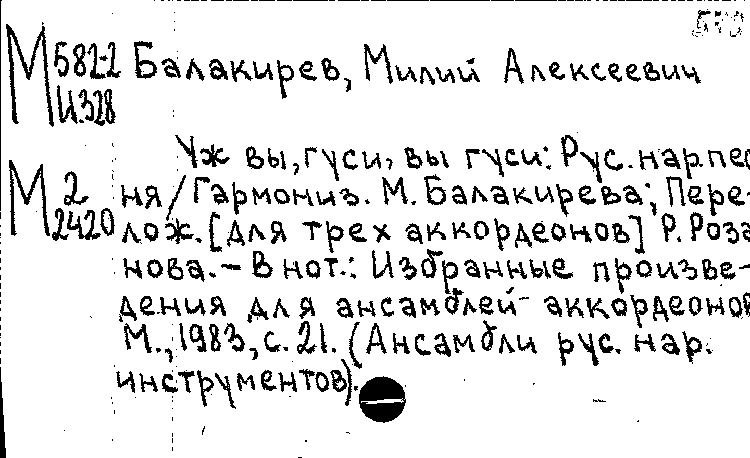 М 582-2 Балакирев, Милий Алексеевич
И328
Уж вы, гуси, вы гуси: Рус. нар. пес
М 2 ня / Гармониз. М. Балакирева; Пере-
2420 лож. [для трех аккордеонов] Р. Роза
нова. – В нот.: Избранные произве-
дения для ансамблей аккордеонов
М., 1983, с. 21. (Ансамбли рус. нар.
инструментов).